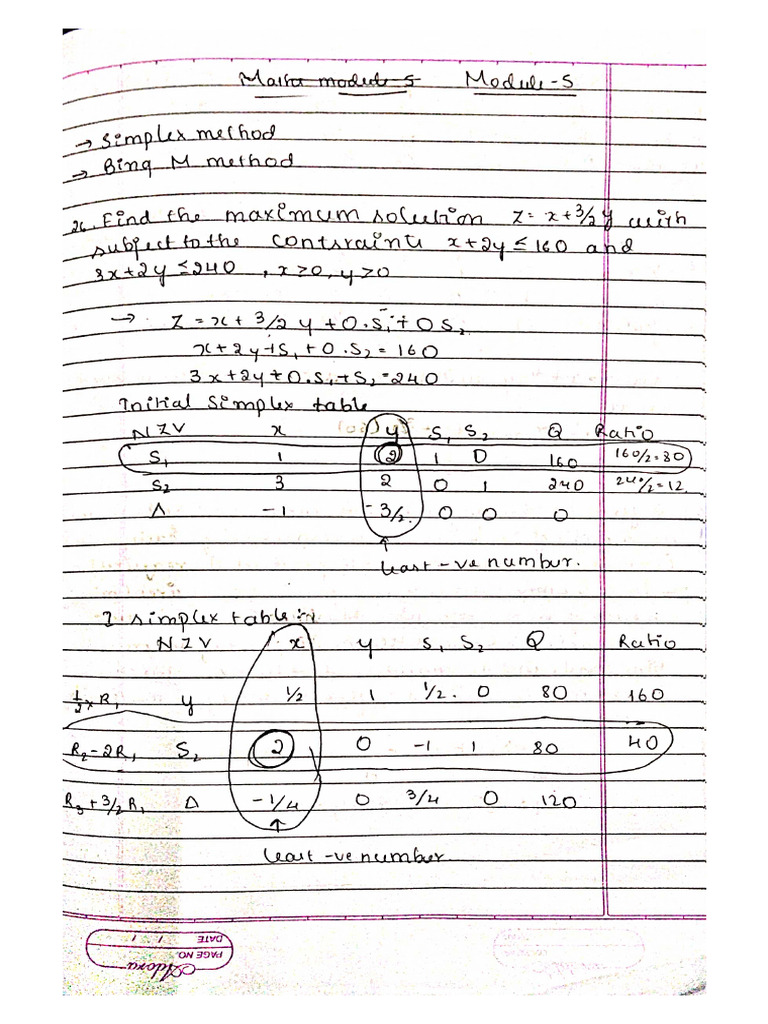 Maths module-5 Module-5
→ Simplex method
→ Binq M method
26. Find the maximum solution Z = x + 3/2 y with
subject to the contsraints x + 2y ≤ 160 and
3x + 2y ≤ 240 , x ≥ 0, y ≥ 0
→ Z = x + 3/2 y + 0.S₁ + 0S₂
x + 2y + S₁ + 0.S₂ = 160
3x + 2y + 0.S₁ + S₂ = 240
Initial simplex table
NZV x y S₁ S₂ Q Ratio
S₁ 1 2 1 0 160 160/2=80
S₂ 3 2 0 1 240 240/2=12
Δ -1 -3/2 0 0 0
↑
least -ve number.
I simplex table :-
NZV x y S₁ S₂ Q Ratio
1/2 × R₁ y 1/2 1 1/2. 0 80 160
R₂ - 2R₁ S₂ 2 0 -1 1 80 40
R₃ + 3/2 R₁ Δ -1/4 0 3/4 0 120
↑
least -ve number.
Adora
PAGE NO.
DATE / /